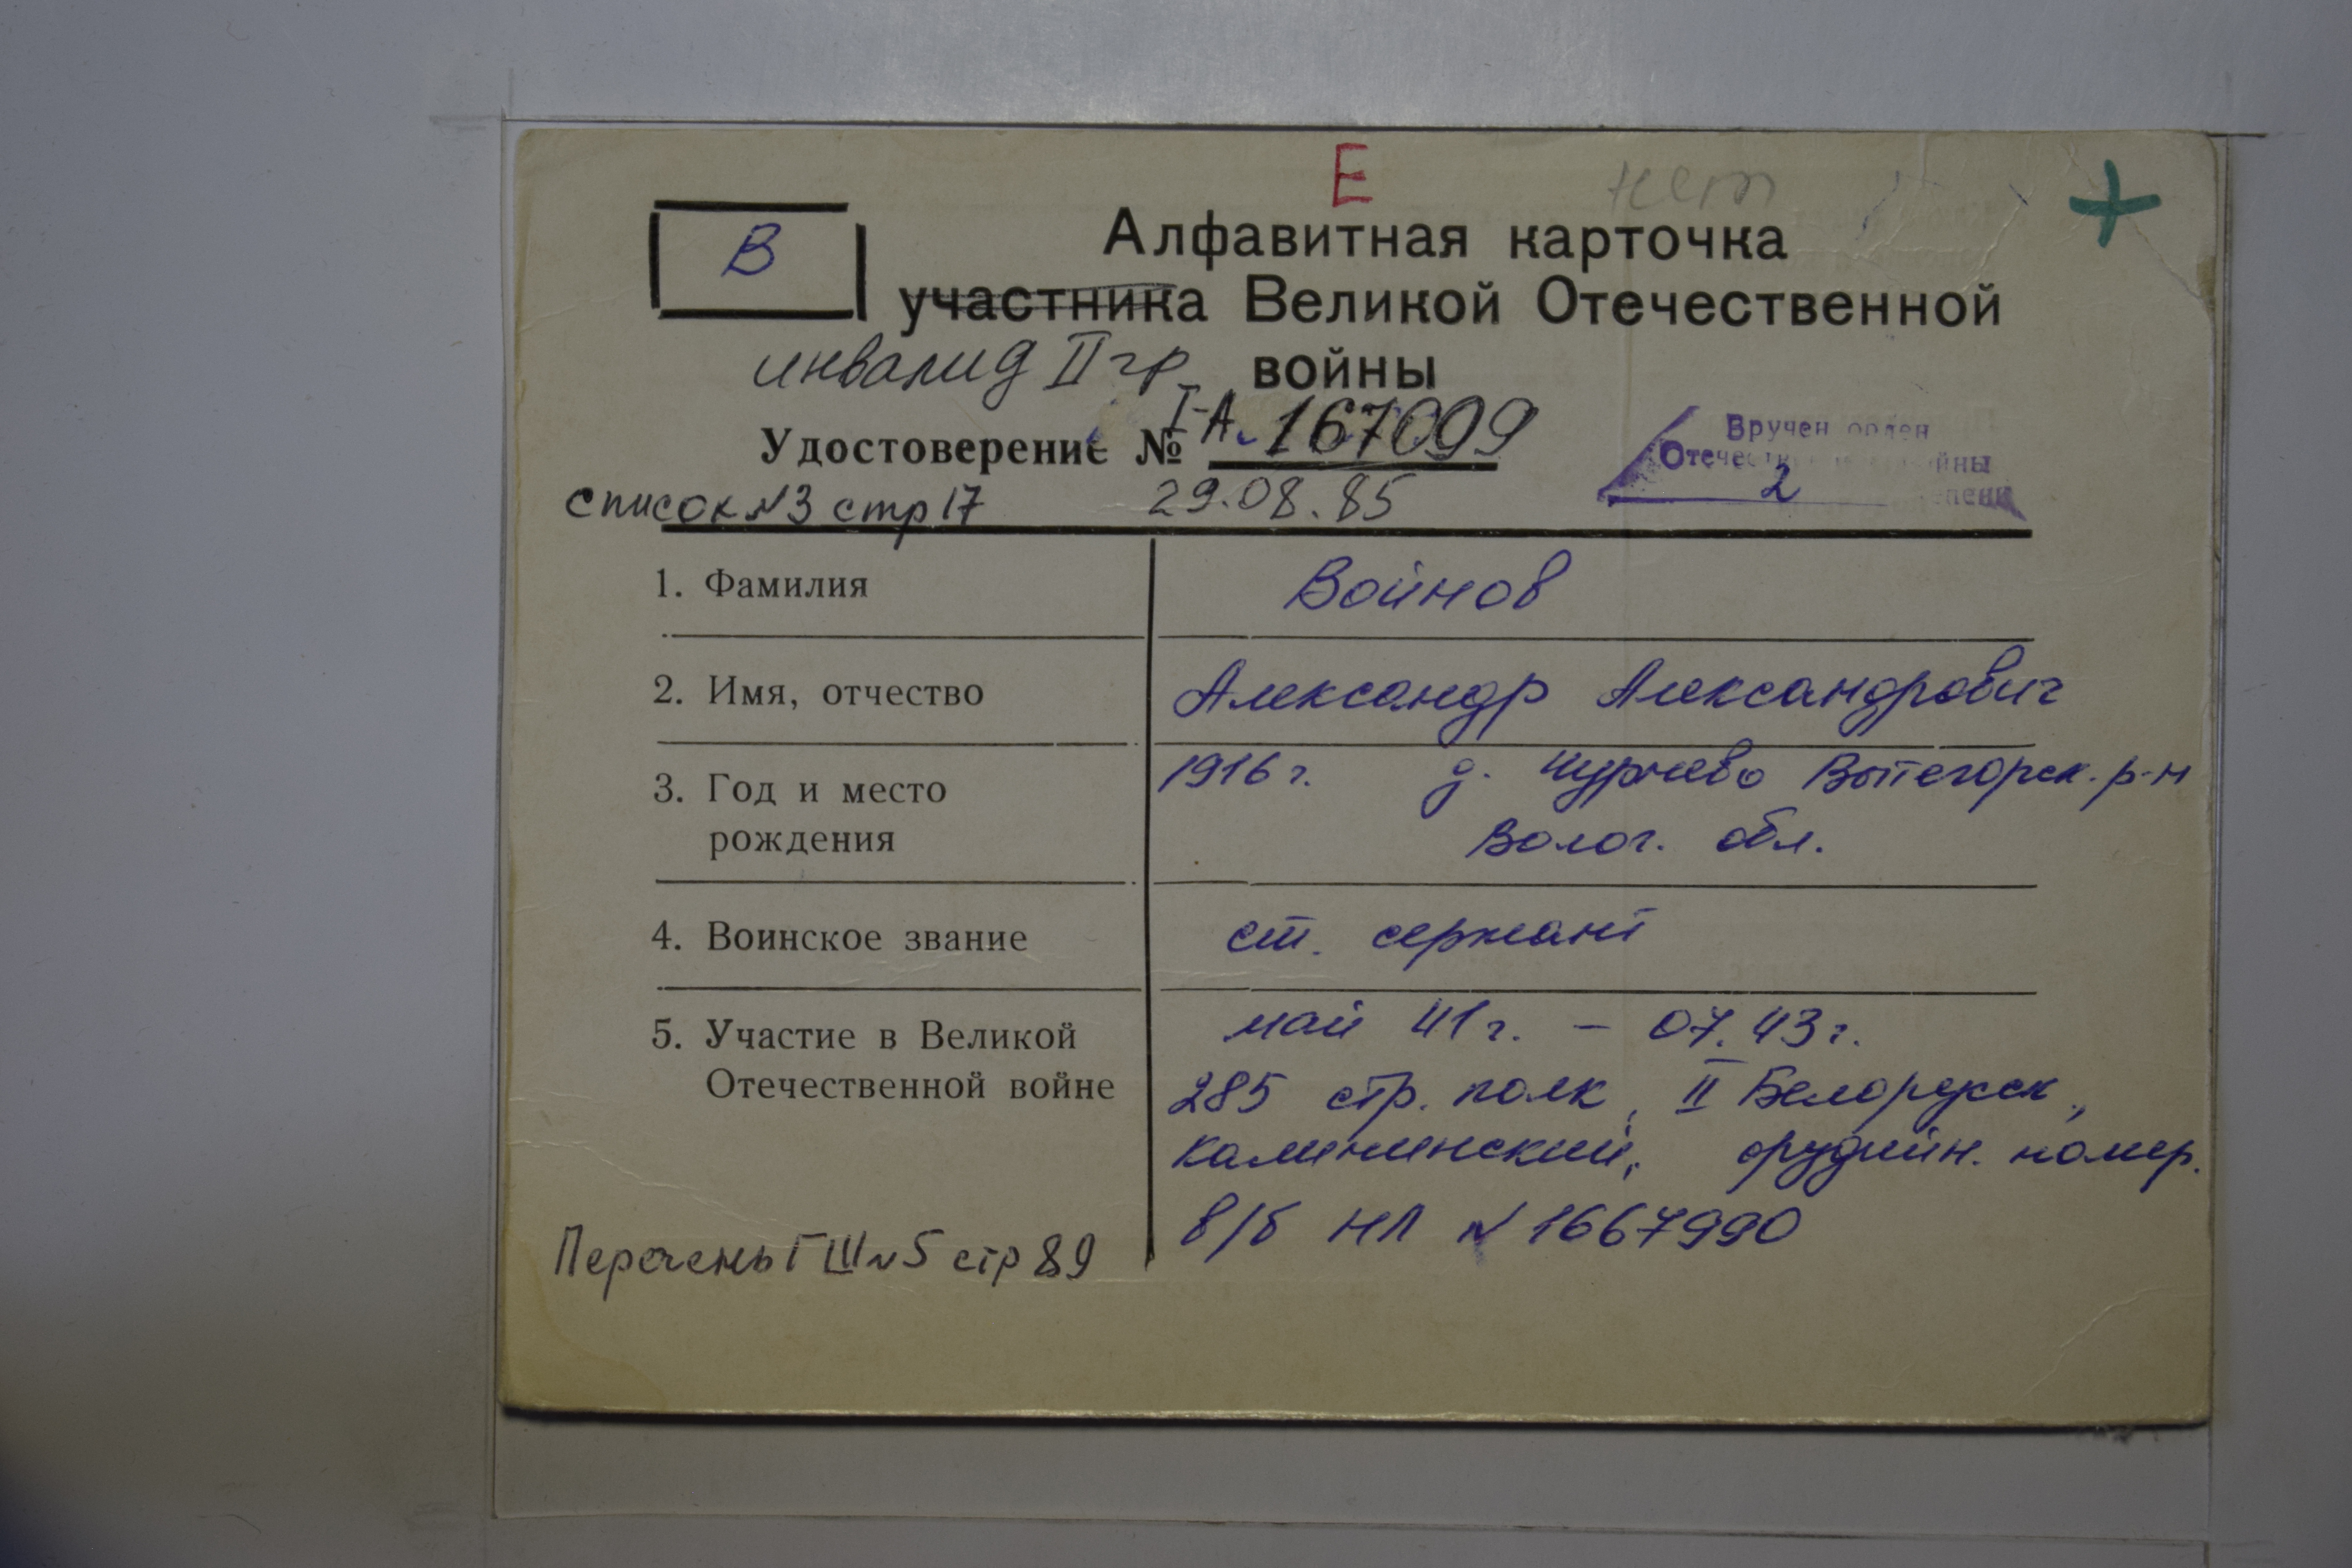 Е нет
В
Алфавитная карточка
участника Великой Отечественной
инвалид II гр. войны
Удостоверение № I-А. 167099
Вручен орден
Отечественной войны
2 степени
список №3 стр 17 29.08.85
1. Фамилия Войнов
2. Имя, отчество Александр Александрович
3. Год и место 1916 г. д. Вытегорск. р-н
рождения Волог. обл.
4. Воинское звание ст. сержант
5. Участие в Великой май 41 г. – 07.43 г.
Отечественной войне 285 стр. полк, II Белорусск,
Калининский, орудийн. номер.
в/б НЛ №1667990
Перечень ГШ №5 стр 89